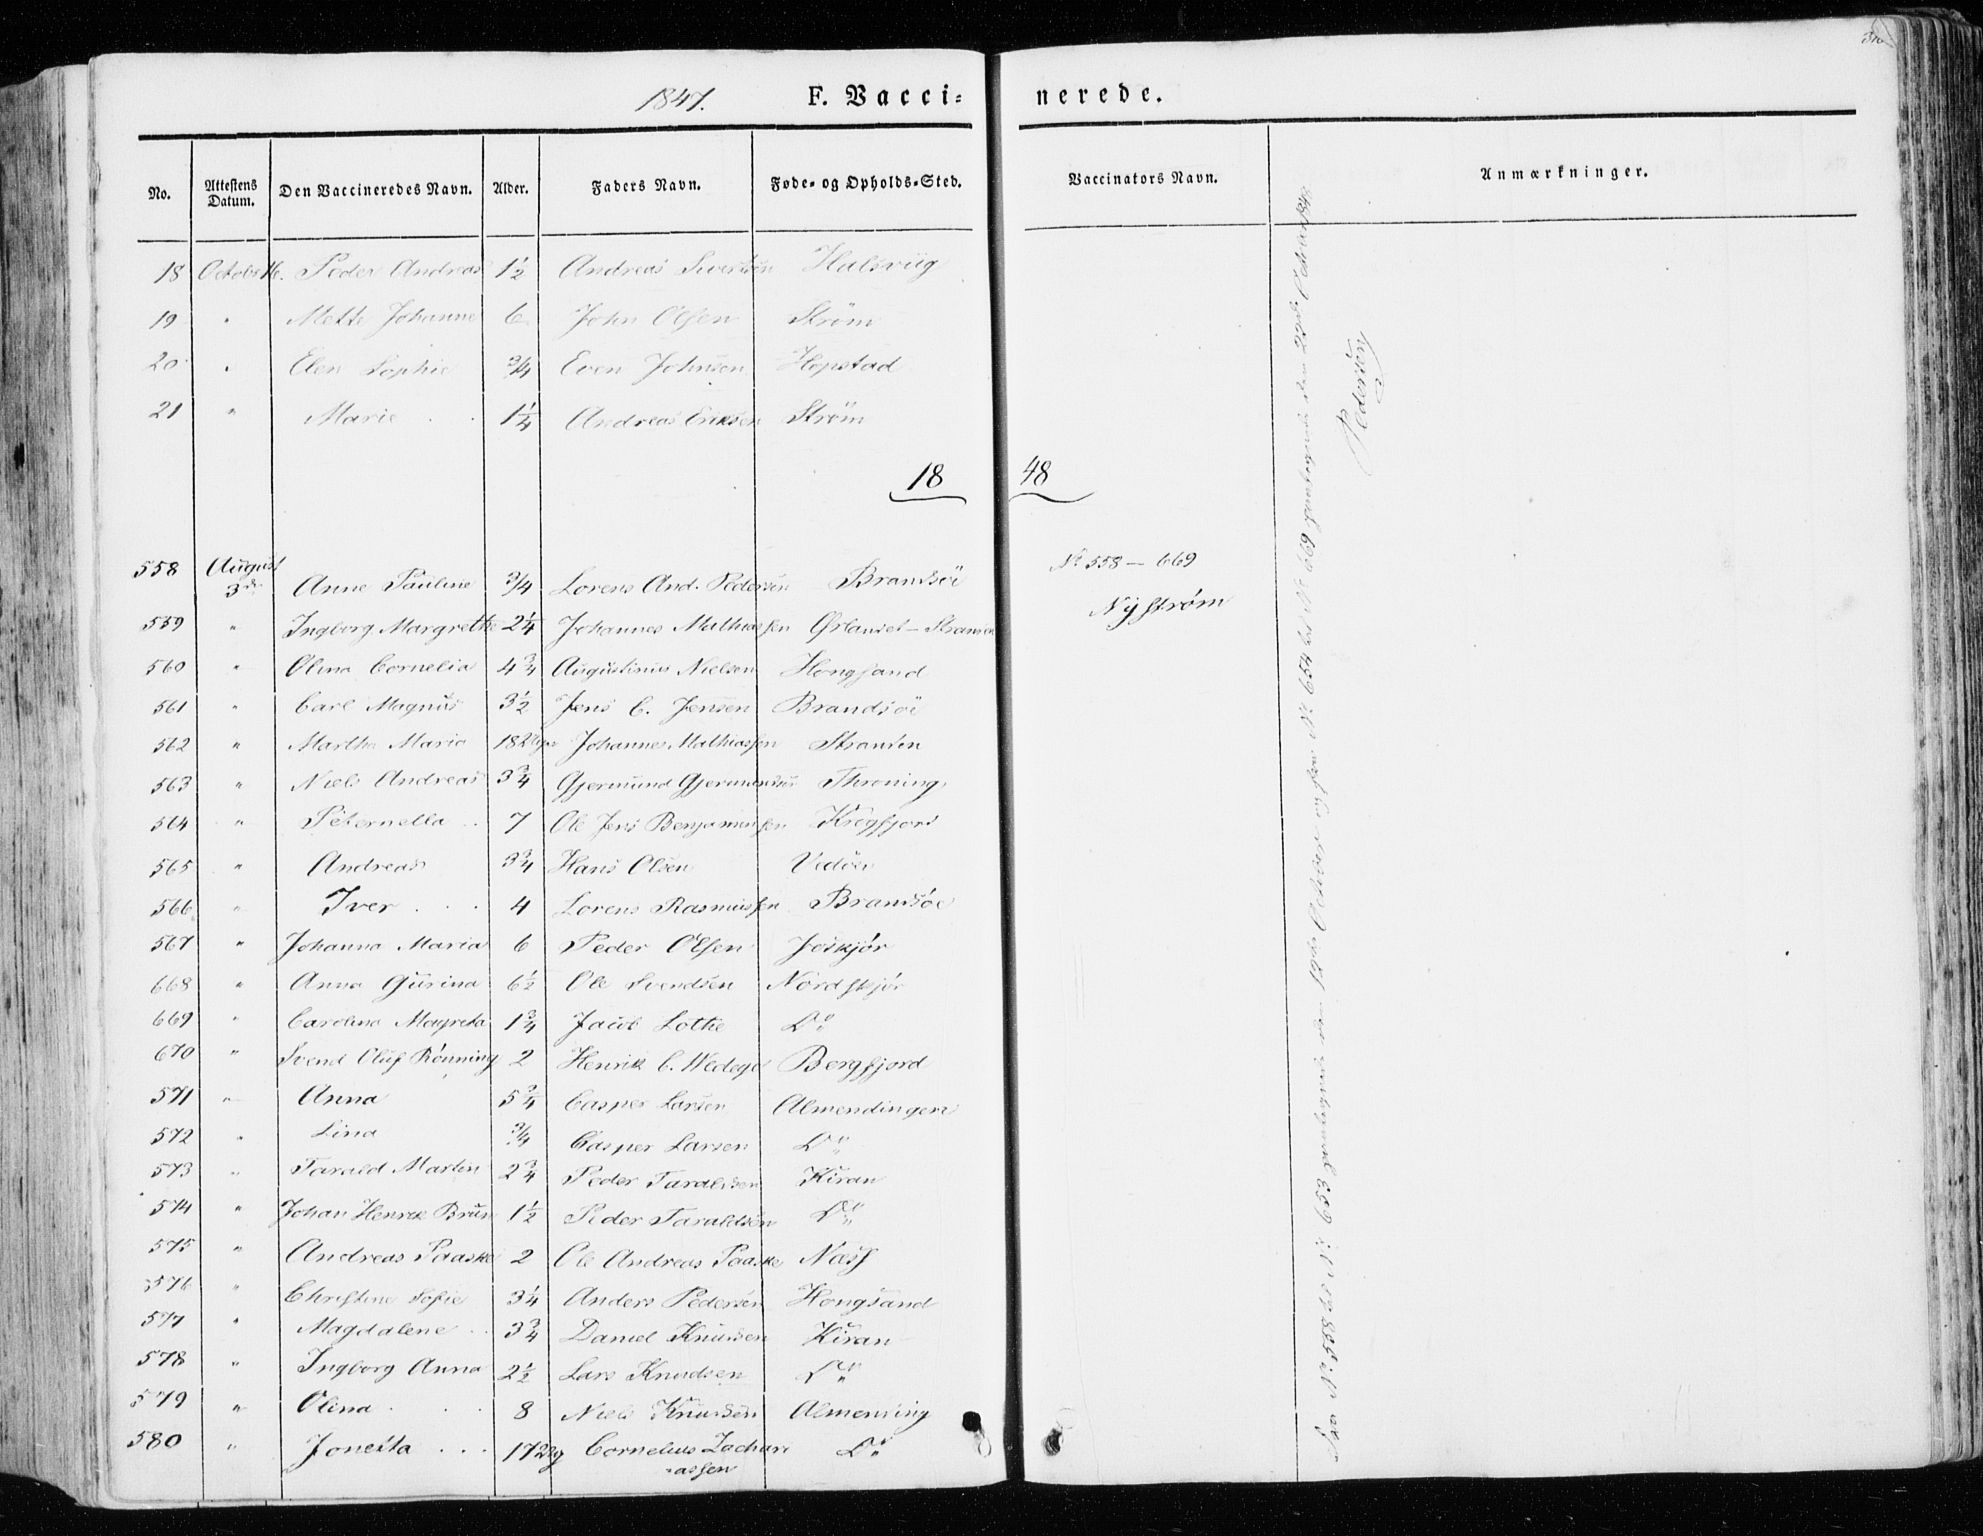 1847. F. Vacci= nerede.
No. Attestens Datum. Den Vaccineredes Navn. Alder. Faders Navn. Føde- og Opholds-Sted. Vaccinators Navn. Anmærkninger.
18 Octobr 16. Peder Andreas 1½ Andreas Sivertsen Halsviig
19 " Mette Johanne 6 John Olsen Strøm
20 " Elen Sophie 3/4 Even Johnsen Hopstad
21 " Marie 1¼ Andreas Eriksen Strøm
18 48
558 August 3de Anne Pauline 3/4 Lorens And. Pedersen Brandsöe No 558 - 669
Nystrøm
559 " Ingborg Margrethe 2¼ Johannes Mathiassen
560 " Olina Cornelia 4¾ Augustinus Nielsen Hongsand
561 " Carl Magnus 3½ Jens C. Jensen Brandsöe
562 " Martha Maria 18 Johannes Mathiassen Stranden
563 " Niels Andreas 3¾ Gjermund Gjermundsen Throning
564 " Peternella 7 Ole Jens Benjaminssen Krogfjord
565 " Andreas 3¾ Hans Olsen
566 " Iver 4 Lorens Rasmussen Brandsöe
567 " Johanna Maria 6 Peder Olsen Joskjør
668 " Anna Gurina 6½ Ole Svendsen Nordskjør
669 " Carolina Magreta 1¾ Jacob Lothe Do
670 " Svend Oluf Rönning 2 Henrik C. Wedege Bergfjord
571 " Anna 5¾ Casper Larsen Almendingen
572 " Lina 3/4 Casper Larsen Do
573 " Tarald Martin 2¾ Peder Taraldsen Kiran
574 " Johan Henrik Brun 1½ Peder Taraldsen Do
575 " Andreas Paaske 2 Ole Andreas Paaske Næss
576 " Christine Sofie 3¼ Anders Pedersen Hongsand
577 " Magdalene 3¾ Daniel Knudsen Kiran
578 " Ingborg Anna 2½ Lars Knudsen Do
579 " Olina 8 Niels Knudsen Almenning
580 " Jonetta 17 Cornelius Zachari
assen Do
No 558 til No 653 den 12te October og fra No 654 til No 669 den
Pedersen